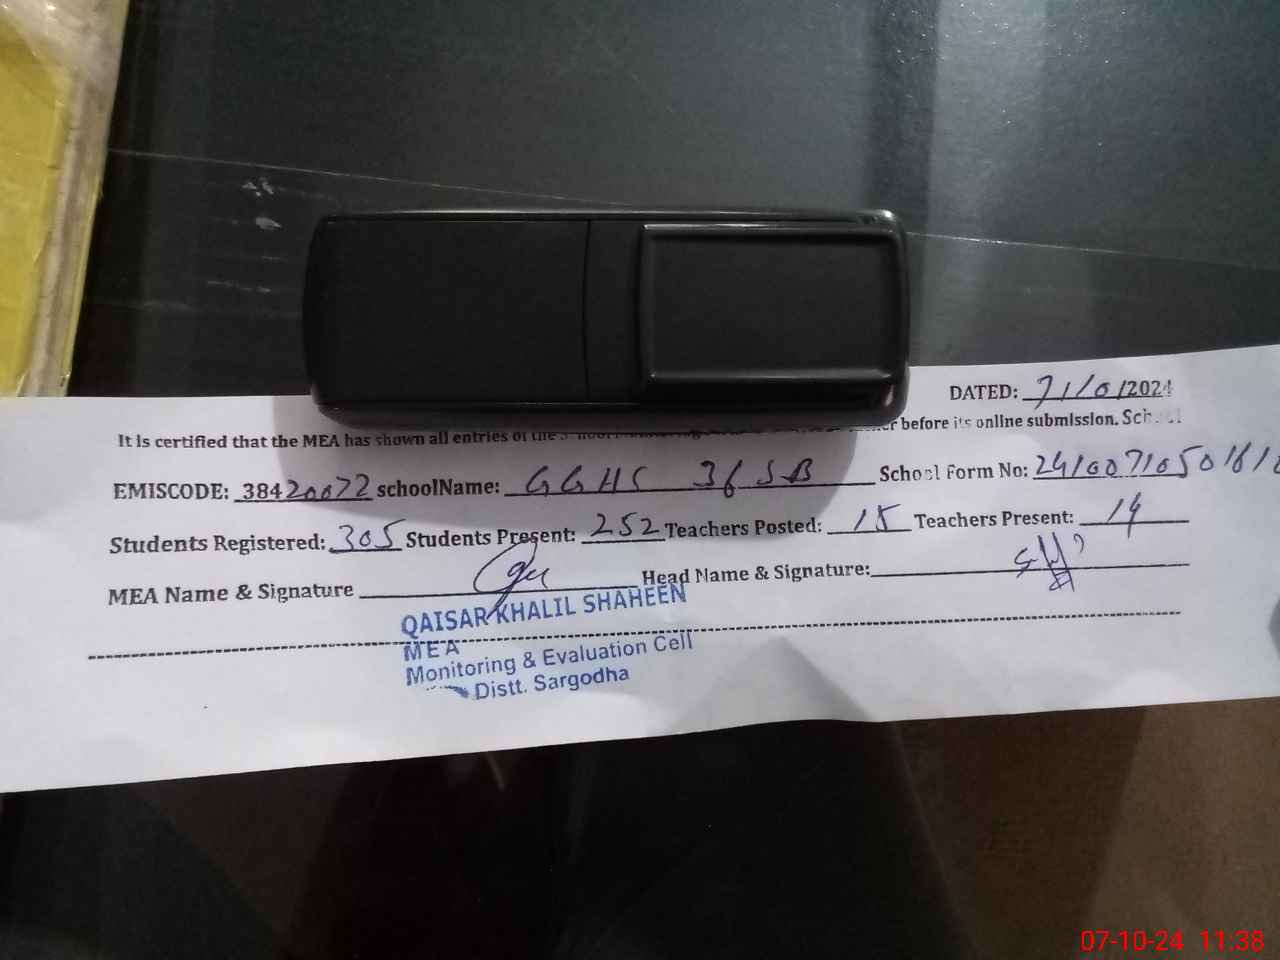 DATED: 7/10/2024
It is certified that the MEA has shown all entries of the before its online submission. School
EMISCODE: 38420072 schoolName: GGHS 36 SB School Form No:
Students Registered: 305 Students Present: 252 Teachers Posted: 15 Teachers Present: 14
MEA Name & Signature Head Name & Signature:
QAISAR KHALIL SHAHEEN
MEA
Monitoring & Evaluation Cell
Distt. Sargodha
07-10-24 11:38